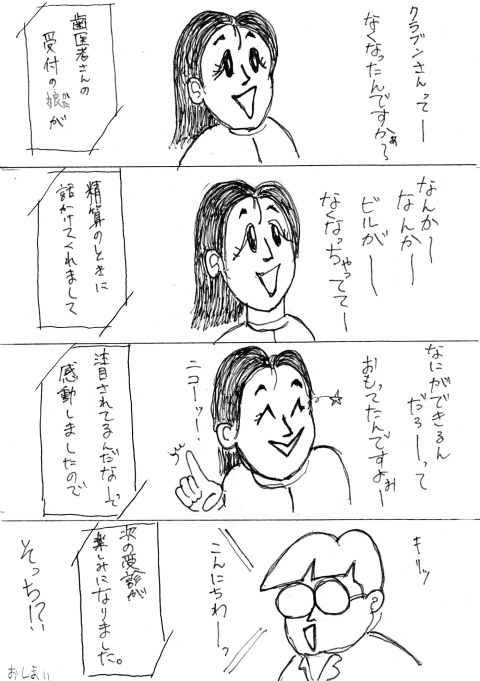 クラブンさんってー
なくなったんですかぁ〜
歯医者さんの
受付の娘が
なんか〜
なんか〜
ビルがー
なくなっちゃっててー
精算のときに
話かけてくれまして
なにができるん
だろーって
おもってたんですよぉー
ニコーッ!
注目されてるんだなーって
感動しましたので
キリッ
こんにちわーっ
次の受診が
楽しみになりました。
そっち!?
おしまい